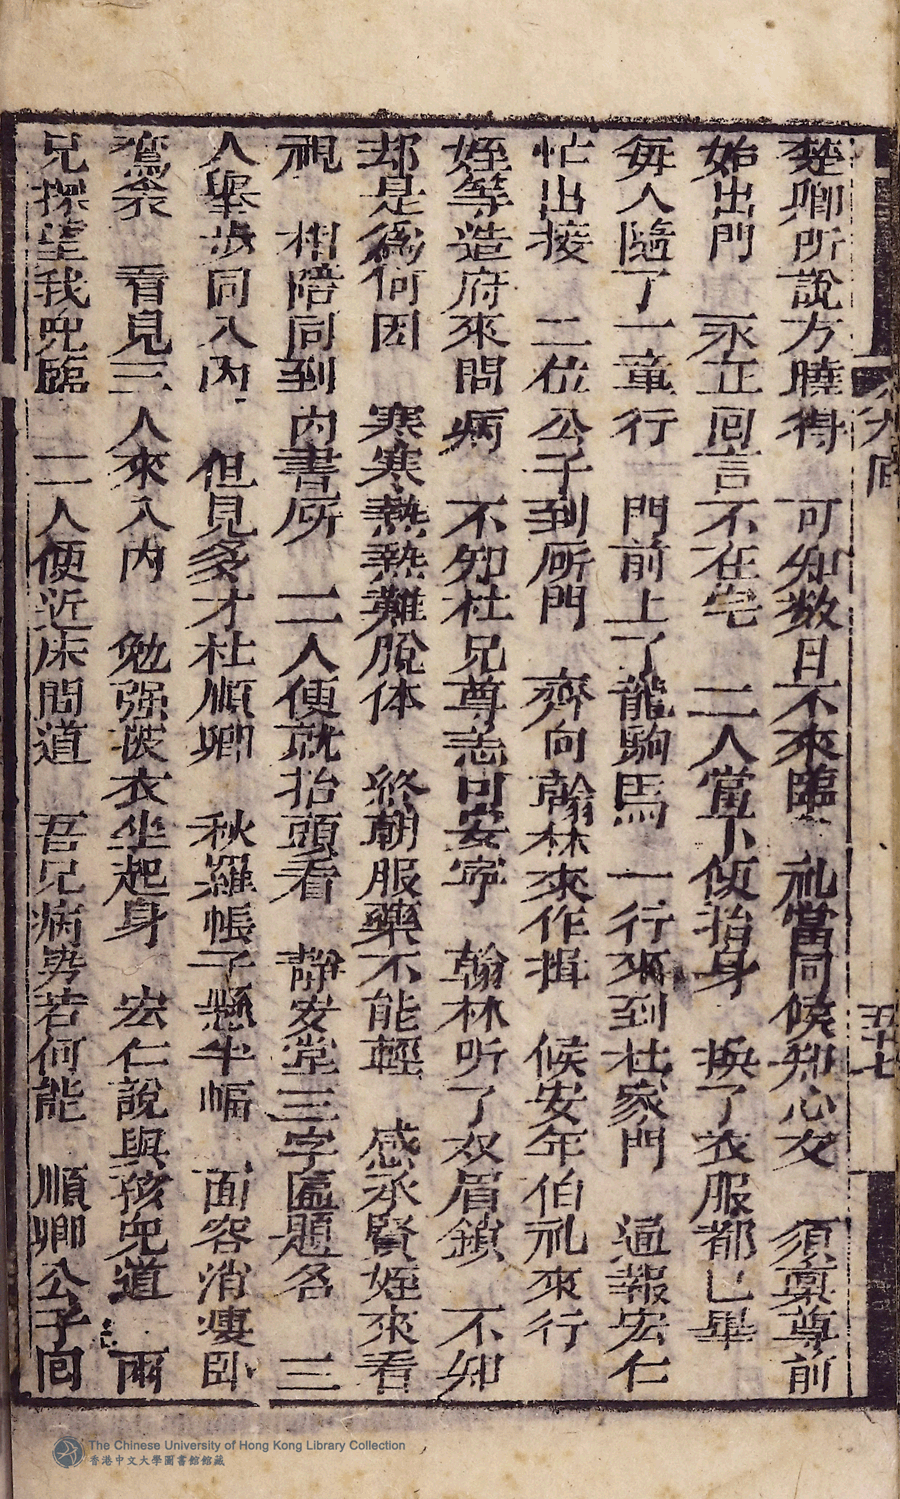 楚卿所說方曉得　可知数日不來臨　礼當問候知心友　須稟尊前
始出門　永立回言不在宅　二人當下便抬身　换了衣服都已畢
每人隨了一童行　門前上了龍駒馬　一行來到杜家門　通報宏仁
忙出接　二位公子到所門　齊向翰林來作揖　候安年伯礼來行
姪等造府來問病　不知杜兄尊恙可安寧　翰林听了双眉鎖　不知
却是爲何因　寒寒熱熱難脫体　終朝服藥不能輕　感承賢姪來看
視　相陪同到內書所　二人便就抬頭看　靜安堂三字匾題名　三
人舉步同入內　但見多才杜順卿　秋羅帳子懸半幅　面容消瘦卧
鴛衾　看見三人來入內　勉强披衣坐起身　宏仁說與孩兒道　兩
兄探望我兒臨　二人便近床問道　吾兄病势若何能　順卿公子回
九回
五十七
The Chinese University of Hong Kong Library Collection
香港中文大學圖書館館藏